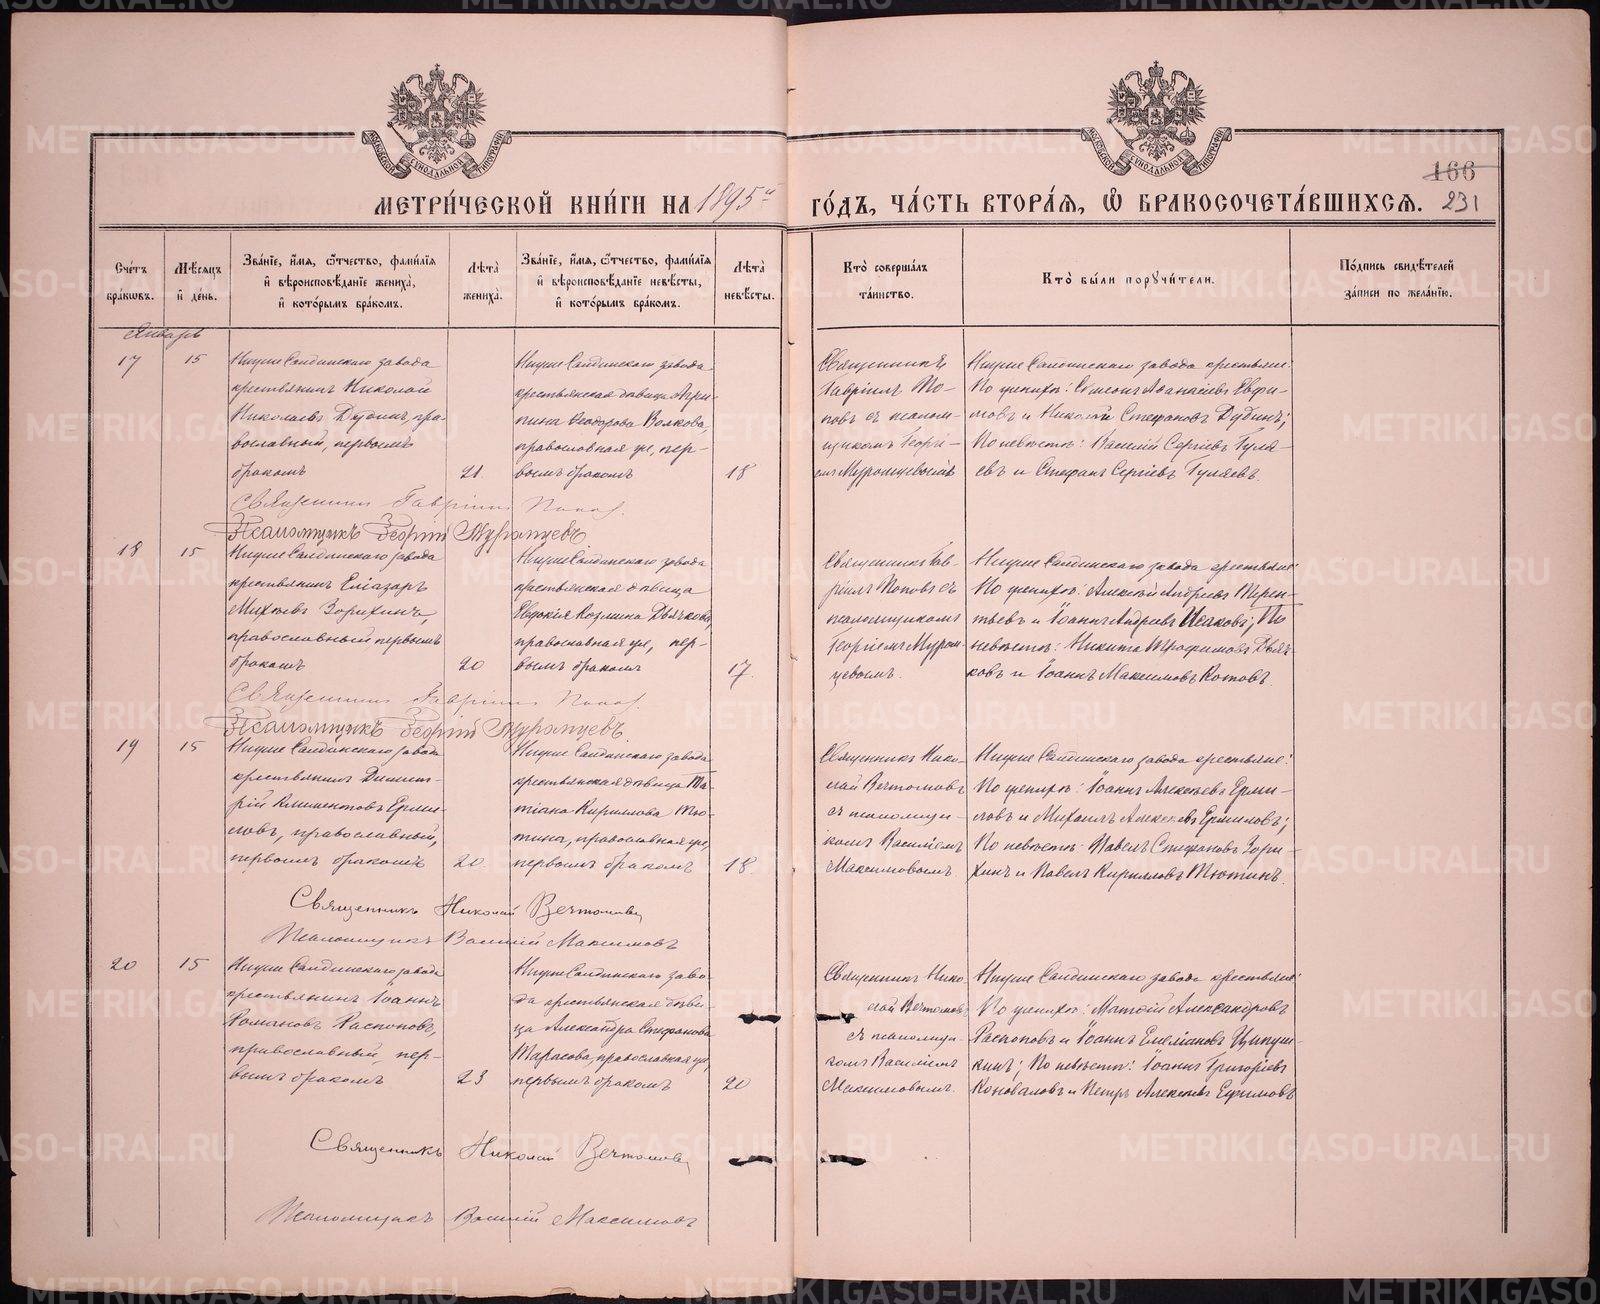 МЕТРИ́ЧЕСКОЙ КНИ́ГИ НА 1895й ГО́ДЪ, ЧА́СТЬ ВТОРА́Я, Ѽ БРАКОСОЧЕТА́ВШИХСЯ.
166
231
Сче́тъ бра́кѡвъ.
Мѣ́сяцъ и҆ де́нь.
Зва́нїе, и҆́мя, ѻ҆́тчество, фами́лїя и҆ вѣроисповѣ́данїе жениха̀, и҆ кото́рымъ бра́комъ.
Лѣ́та жениха̀.
Зва́нїе, и҆́мя, ѻ҆́тчество, фами́лїя и҆ вѣроисповѣ́данїе невѣ́сты, и҆ кото́рымъ бра́комъ.
Лѣ́та невѣ́сты.
Кто̀ соверша́лъ та́инство.
Кто̀ бы́ли порꙋчи́тели.
По́дпись свидѣ́телей за́писи по жела́нїю.
Январь
17
15
Нижне Салдинскаго завода
крестьянинъ Николай
Николаевъ Дубинъ, пра-
вославный, первымъ
бракомъ
21.
Нижне Салдинскаго завода
крестьянская дѣвица Агри-
пина Ѳеодорова Волкова,
православная же, пер-
вымъ бракомъ
18
Священникъ
Гавріилъ По-
повъ съ псалом-
щикомъ Георгі-
емъ
Нижне Салдинскаго завода крестьяне:
По женихѣ: Симеонъ Аѳанасіевъ Евфи-
мовъ и Николай Стефановъ Дубинъ;
По невѣстѣ: Василій Сергіевъ Гуля-
евъ и Стефанъ Сергіевъ Гуляевъ.
Священникъ Гавріилъ Поповъ.
Псаломщикъ Георгій Муромцевъ
18
15
Нижне Салдинскаго завода
крестьянинъ Еліазаръ
Михѣевъ Зорихинъ,
православный первымъ
бракомъ
20
Нижне Салдинскаго завода
крестьянская дѣвица
Евдокія Козмина Дьячкова,
православная же, пер-
вымъ бракомъ
17.
Священникъ Гав-
ріилъ Поповъ съ
псаломщикомъ
Георгіемъ Муром-
цевымъ.
Нижне Салдинскаго завода крестьяне:
По женихѣ: Алексѣй Андреевъ Терен-
тьевъ и Іоаннъ Андреевъ Исаковъ; По
невѣстѣ: Никита Трофимовъ Дьяч-
ковъ и Іоаннъ Максимовъ Котовъ.
Священникъ Гавріилъ Поповъ.
Псаломщикъ Георгій Муромцевъ.
19
15
Нижне Салдинскаго завода
крестьянинъ Димит-
рій Климентовъ Ерми-
ловъ, православный,
первымъ бракомъ
20.
Нижне Салдинскаго завода
крестьянская дѣвица Та-
тіана Кириллова Тю-
тина, православная же,
первымъ бракомъ
18.
Священникъ Нико-
лай Вечтомовъ
съ псаломщи-
комъ Василіемъ
Максимовымъ.
Нижне Салдинскаго завода крестьяне:
По женихѣ: Іоаннъ Алексѣевъ Ерми-
ловъ и Михаилъ Алексѣевъ Ермиловъ;
По невѣстѣ: Павелъ Стефановъ Зори-
хинъ и Павелъ Кирилловъ Тютинъ.
Священникъ Николай Вечтомовъ
Псаломщикъ Василій Максимовъ
20
15
Нижне Салдинскаго завода
крестьянинъ Іоаннъ
Романовъ Распоповъ,
православный, пер-
вымъ бракомъ
23
Нижне Салдинскаго заво-
да крестьянская дѣви-
ца Александра Стефанова
Тарасова, православная же,
первымъ бракомъ
20
Священникъ Нико-
лай Вечтомовъ
съ псаломщи-
комъ Василіемъ
Максимовымъ.
Нижне Салдинскаго завода крестьяне:
По женихѣ: Александровъ
Распоповъ и Іоаннъ Емеліановъ Ципуш-
кинъ; По невѣстѣ: Іоаннъ Григоріевъ
Коноваловъ и Петръ Алексѣевъ Ефимовъ
Священникъ Николай Вечтомовъ
Псаломщикъ Василій Максимовъ
METRIKI.GASO-URAL.RU